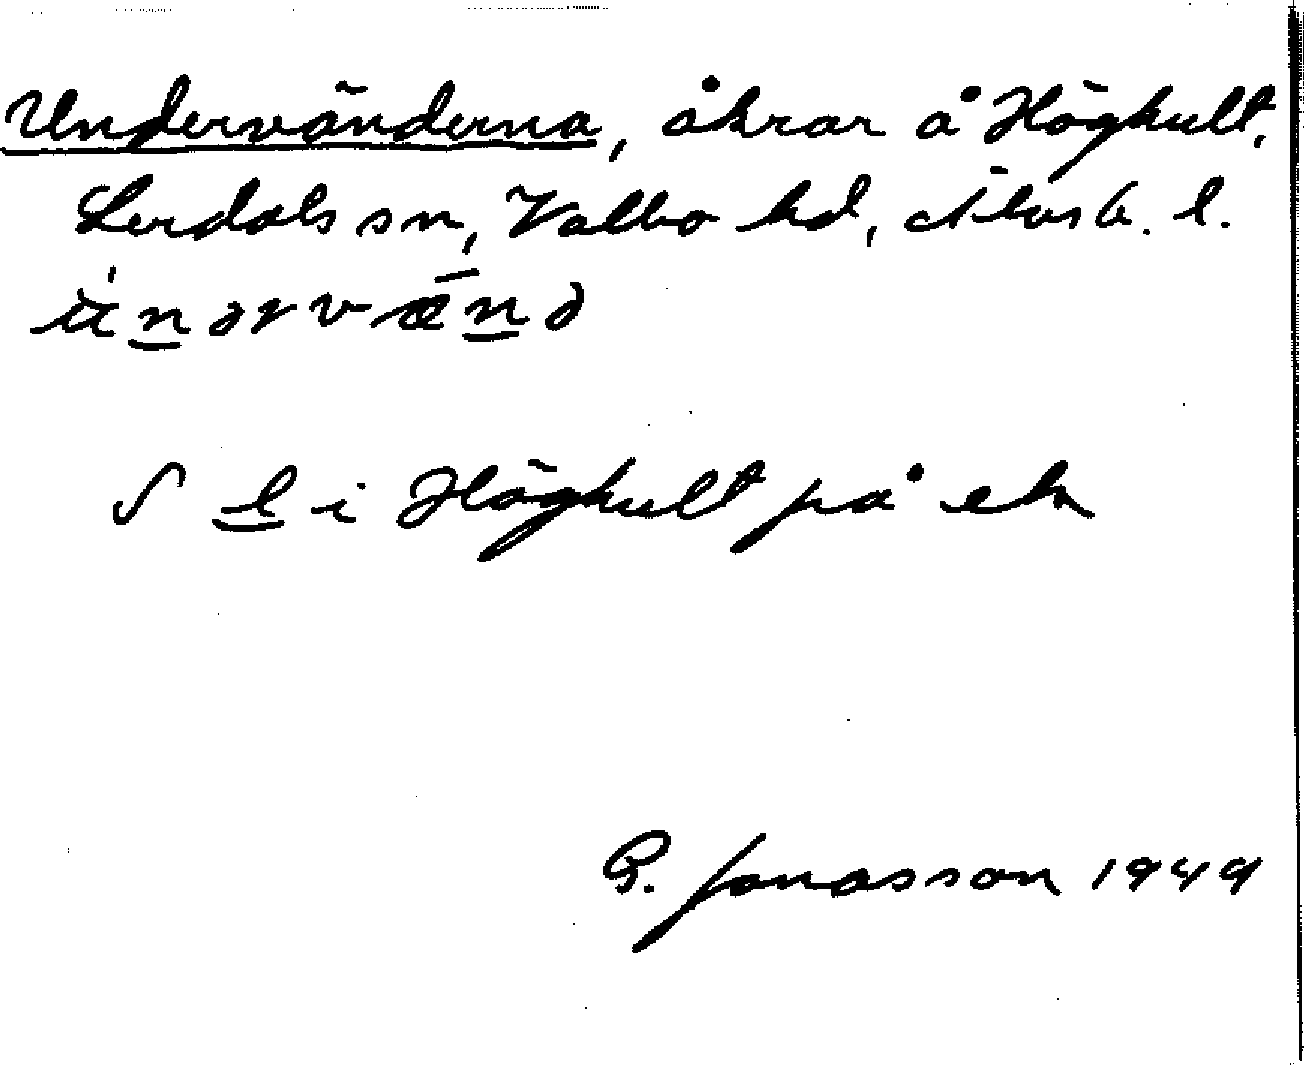 Undervänderna, åkrar å Högkult,
Lerdals sn, Valbo hd, Älvsb. l.
i Högkult på ek
P. Jonasson 1949